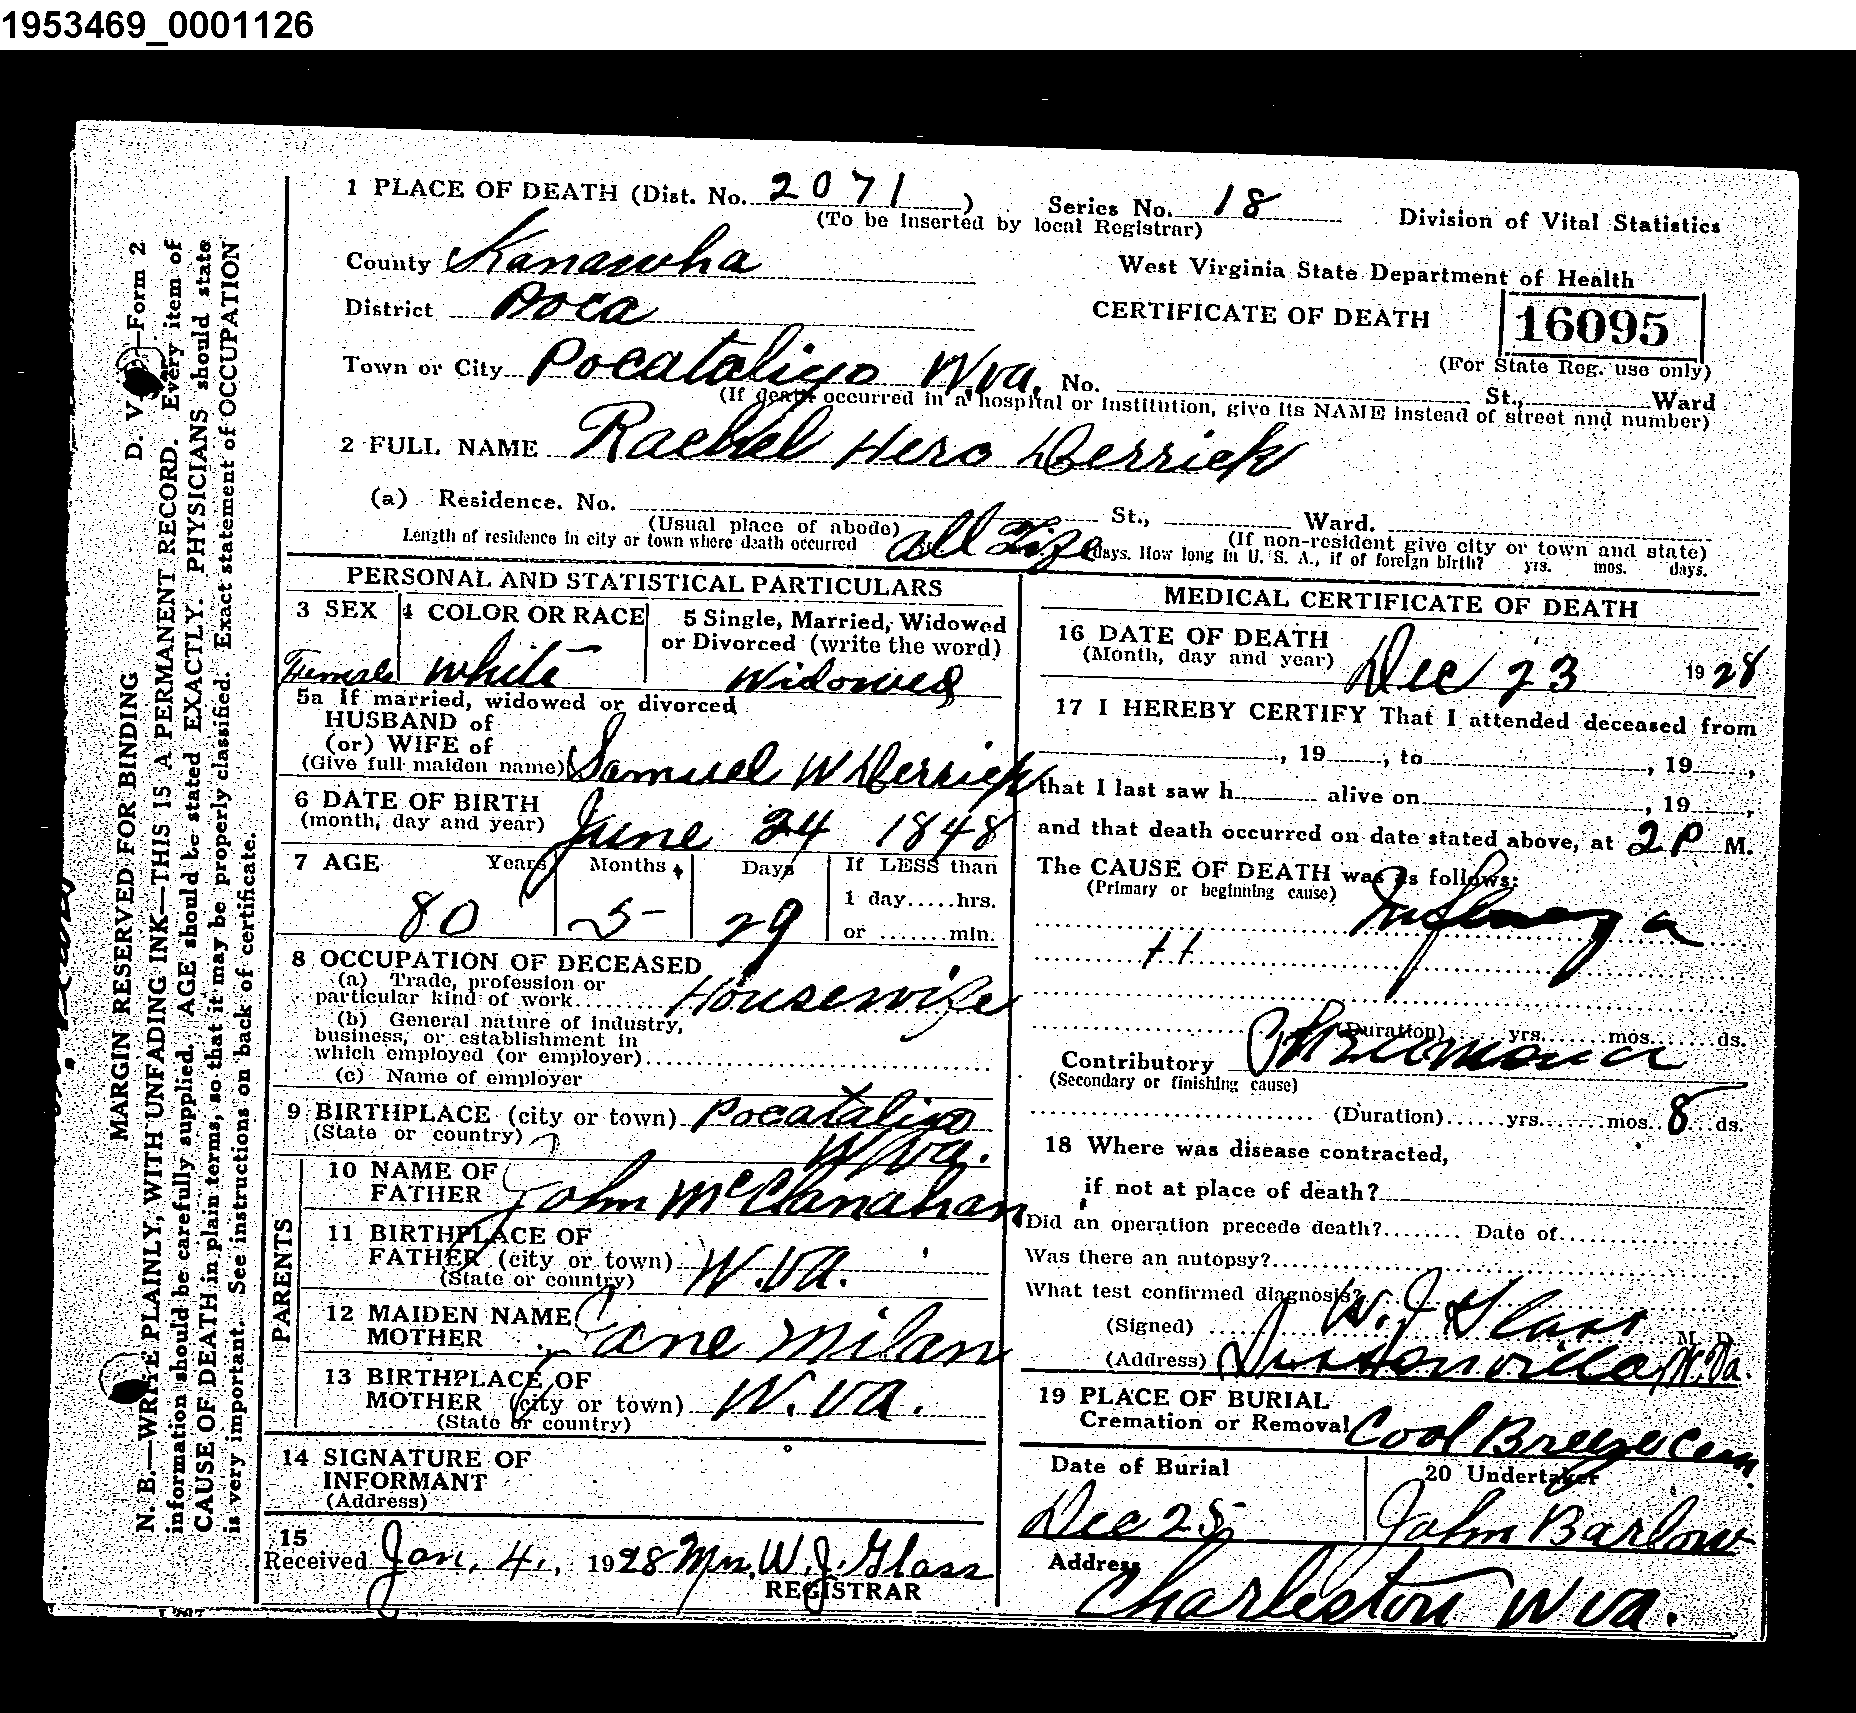 1953469_0001126
1 PLACE OF DEATH (Dist. No. 2071 )
Series No. 18
Division of Vital Statistics
(To be inserted by local Registrar)
County Kanawha
West Virginia State Department of Health
District Poca
CERTIFICATE OF DEATH
16095
(For State Reg. use only)
Town or City Pocataligo W.va. No. St., Ward
(If death occurred in a hospital or institution, give its NAME instead of street and number)
2 FULL NAME Rachel Hero Derrick
(a) Residence. No. St., Ward.
(Usual place of abode)
(If non-resident give city or town and state)
Length of residence in city or town where death occurred all Life days. How long in U. S. A., if of foreign birth? yrs. mos. days.
PERSONAL AND STATISTICAL PARTICULARS
3 SEX
Female
4 COLOR OR RACE
white
5 Single, Married, Widowed
or Divorced (write the word)
Widowed
5a If married, widowed or divorced
HUSBAND of
(or) WIFE of
(Give full maiden name) Samuel W Derrick
6 DATE OF BIRTH
(month, day and year) June 24 1848
7 AGE Years Months Days If LESS than
1 day.....hrs.
80 5 29
or .......min.
8 OCCUPATION OF DECEASED
(a) Trade, profession or
particular kind of work Housewife
(b) General nature of industry,
business, or establishment in
which employed (or employer)
(c) Name of employer
9 BIRTHPLACE (city or town) Pocataligo
(State or country) W va.
PARENTS
10 NAME OF
FATHER John McClanahan
11 BIRTHPLACE OF
FATHER (city or town) W.va.
(State or country)
12 MAIDEN NAME
MOTHER Jane Milan
13 BIRTHPLACE OF
MOTHER (city or town) W.va.
(State or country)
14 SIGNATURE OF
INFORMANT
(Address)
15
Received Jan. 4., 1928 Mrs. W.J. Glass
REGISTRAR
MEDICAL CERTIFICATE OF DEATH
16 DATE OF DEATH
(Month, day and year) Dec 23 1928
17 I HEREBY CERTIFY That I attended deceased from
, 19 , to , 19 ,
that I last saw h alive on , 19 ,
and that death occurred on date stated above, at 2 P M.
The CAUSE OF DEATH was as follows:
(Primary or beginning cause) Influenza
11
(Duration) yrs. mos. ds.
Contributory Pneumonia
(Secondary or finishing cause)
(Duration) yrs. mos. 8 ds.
18 Where was disease contracted,
if not at place of death?
Did an operation precede death? Date of
Was there an autopsy?
What test confirmed diagnosis?
(Signed) W. J Glass M. D.
(Address) Sissonville, W.Va.
19 PLACE OF BURIAL
Cremation or Removal Cool Breeze Cem.
Date of Burial
Dec 25
20 Undertaker
John Barlow
Address
Charleston W va.
D. V. —Form 2
MARGIN RESERVED FOR BINDING
N. B.—WRITE PLAINLY, WITH UNFADING INK—THIS IS A PERMANENT RECORD. Every item of
information should be carefully supplied. AGE should be stated EXACTLY. PHYSICIANS should state
CAUSE OF DEATH in plain terms, so that it may be properly classified. Exact statement of OCCUPATION
is very important. See instructions on back of certificate.